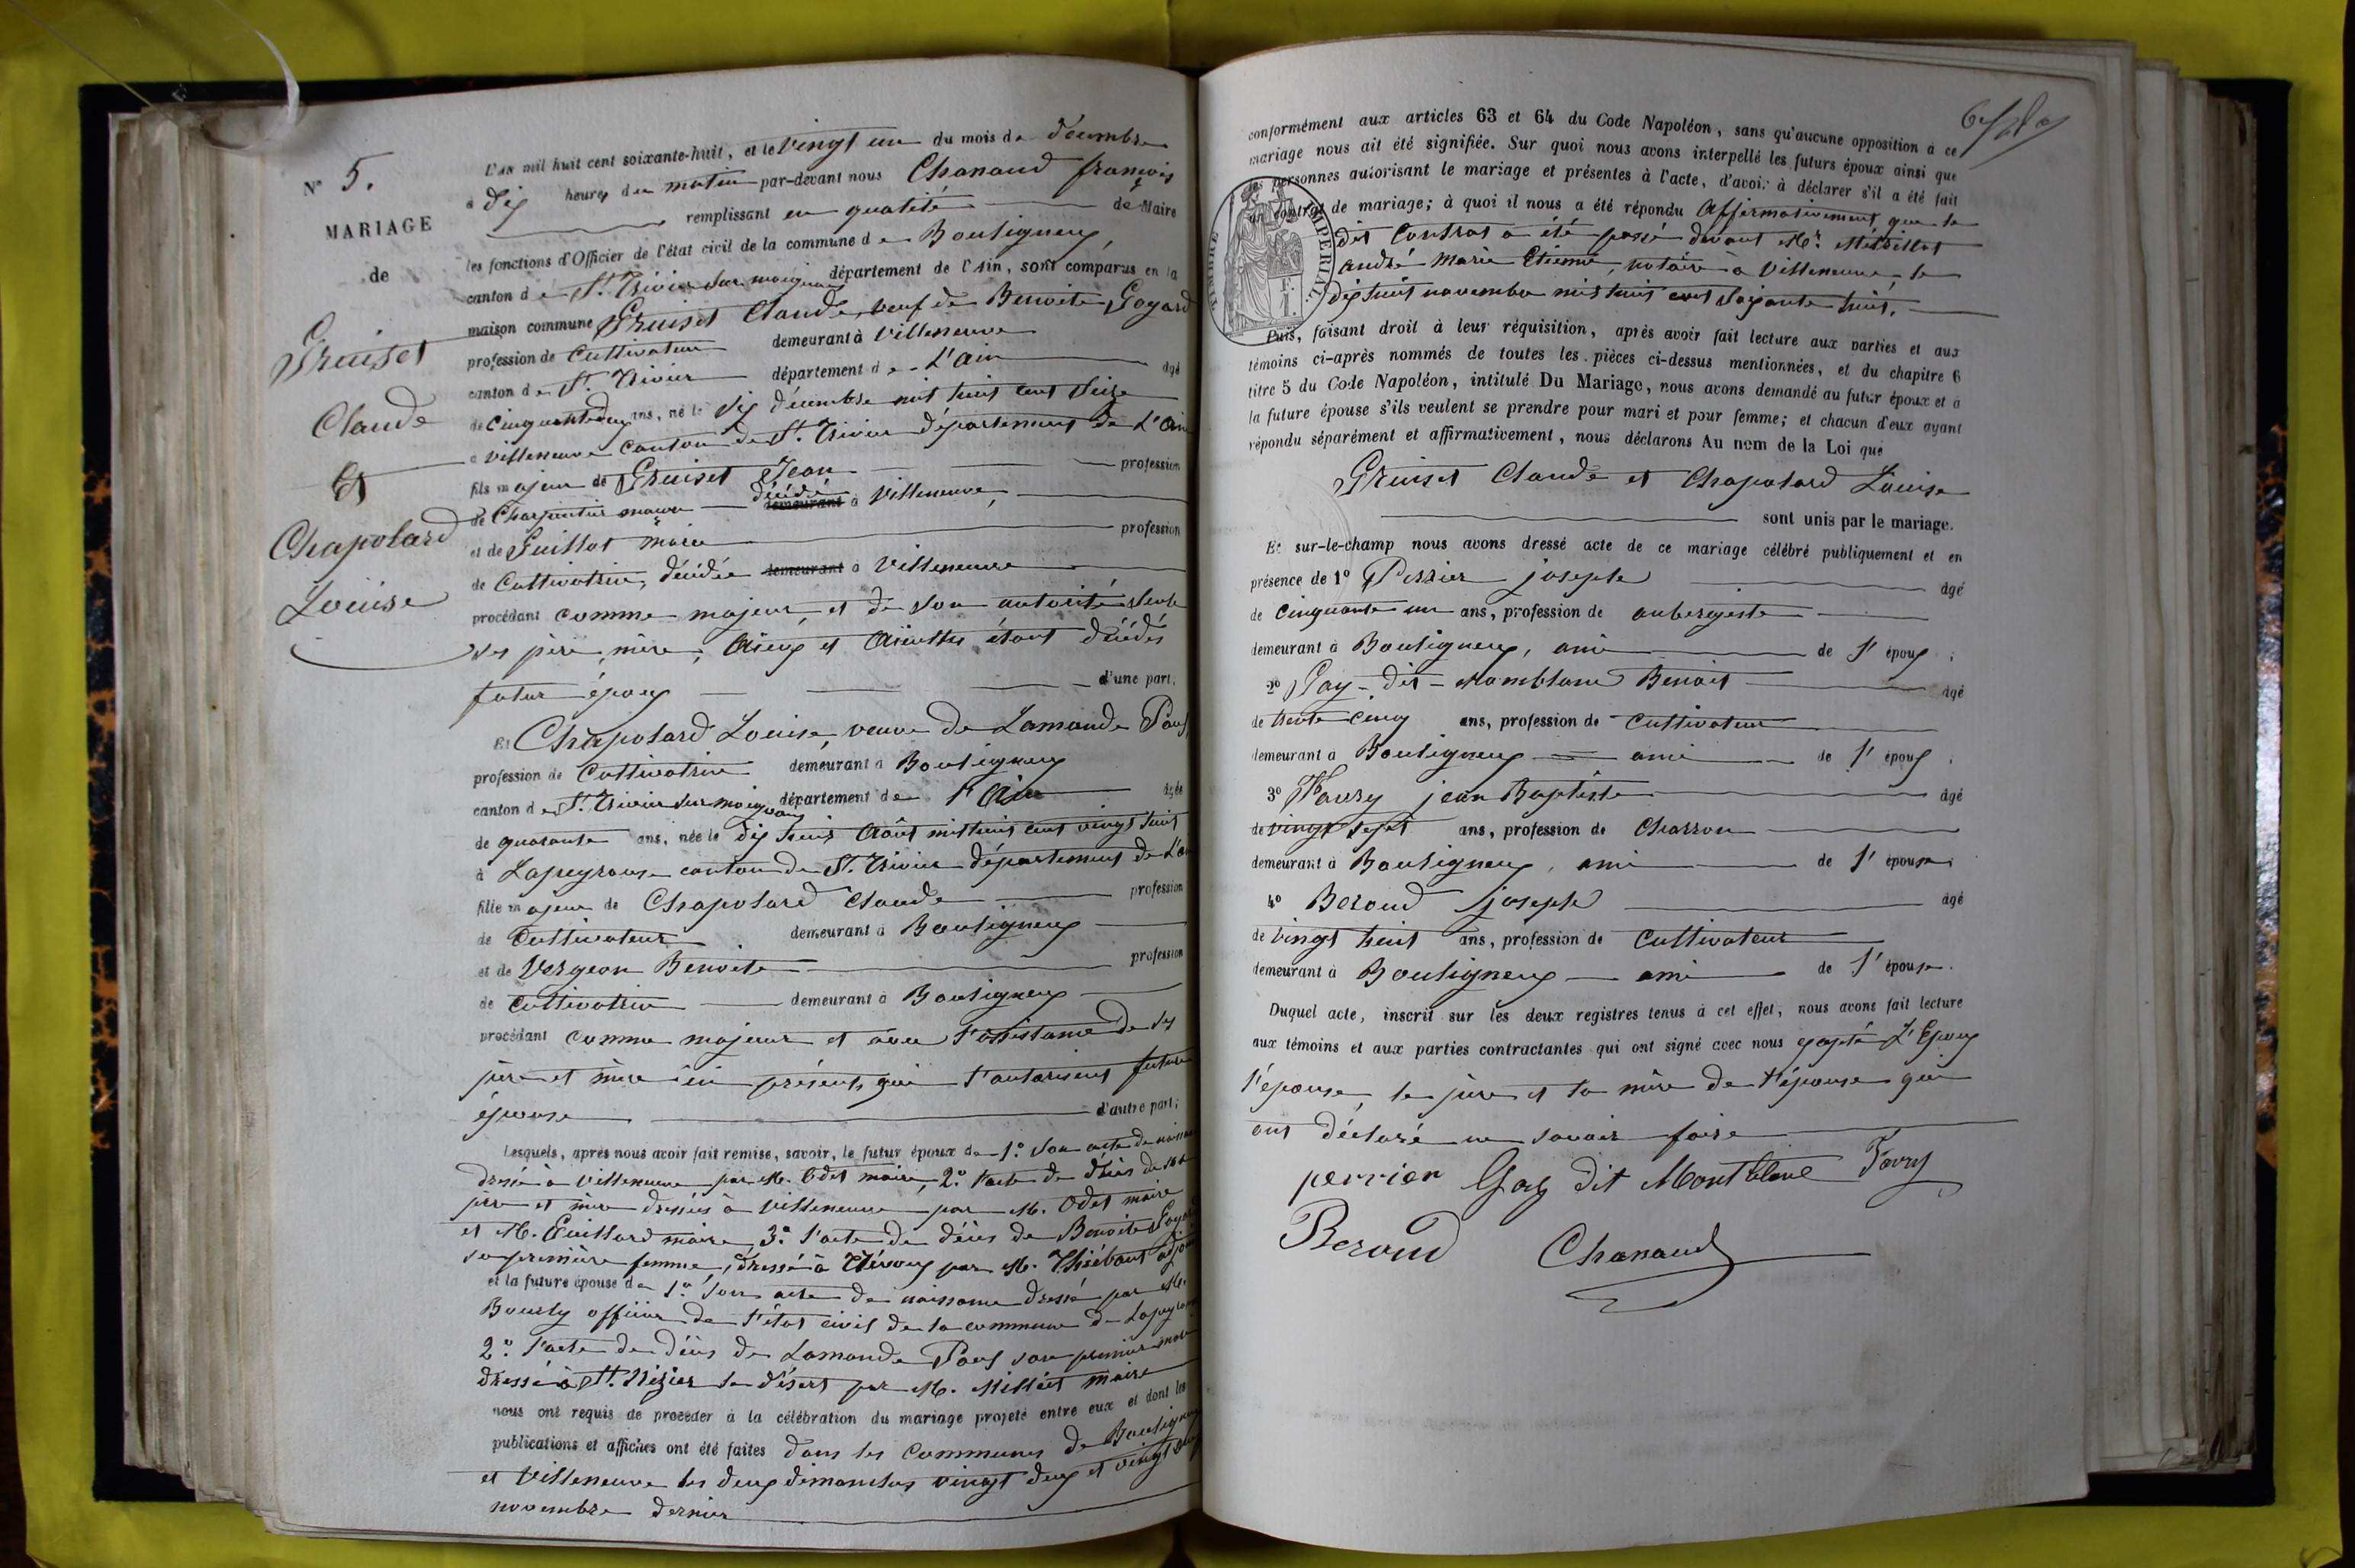 N° 5.
MARIAGE
de
Gruiset
Claude
Et
Chapolard
Louise
L'an mil huit cent soixante-huit, et le vingt un du mois de décembre
à dix heures du matin par-devant nous Chanaud françois
remplissant en qualité de Maire
les fonctions d'Officier de l'état civil de la commune de Bouligneux,
canton de St. Trivier sur moignans département de l'Ain, sont comparus en la
maison commune Gruiset Claude, veuf de Benoite Goyard
profession de Cultivateur demeurant à Villeneuve
canton de St. Trivier département de L'ain âgé
de cinquante deux ans, né le dix décembre mil huit cent seize
à Villeneuve canton de St. Trivier département de L'ain
fils majeur de Gruiset Jean profession
de Charpentier maçon décédé demeurant à Villeneuve,
et de Guillot marie profession
de Cultivatrice, décédée demeurant à Villeneuve
procédant comme majeur, et de son autorité seule
ses père, mère, Aïeux et Aïeulles étant décédés
futur époux d'une part,
Et Chapolard Louise, veuve de Lamande Paul
profession de Cultivatrice demeurant à Bouligneux
canton de St. Trivier sur moignans département de l'Ain âgée
de quarante ans, née le dix huit Août mil huit cent vingt huit
à Lapeyrouse canton de St. Trivier département de L'ain
fille majeur de Chapolard Claude profession
de Cultivateur demeurant à Bouligneux
et de Vergeon Benoite profession
de Cultivatrice demeurant à Bouligneux
procédant comme majeur et avec l'assistance de ses
père et mère ici présents, qui l'autorisent future
épouse d'autre part;
Lesquels, après nous avoir fait remise, savoir, le futur époux de 1° Son acte de naissance
dressé à Villeneuve par M. Odet maire, 2° l'acte de décès de ses
père et mère dressés à Villeneuve par M. Odet maire
et M. Guillard maire, 3° l'acte de décès de Benoite Goyard
sa première femme, dressé à Trévoux par M. Thiébaut adjoint
et la future épouse de 1° Son acte de naissance dressé par M.
officier de l'état civil de la commune de Lapeyrouse
2° l'acte de décès de Lamande Paul son premier mari
dressé à St. Nizier le désert par M. Milliet maire
nous ont requis de procéder à la célébration du mariage projeté entre eux et dont les
publications et affiches ont été faites dans les Communes de Bouligneux
et Villeneuve les deux dimanches vingt deux et vingt neuf
novembre dernier
conformément aux articles 63 et 64 du Code Napoléon, sans qu'aucune opposition à ce
mariage nous ait été signifiée. Sur quoi nous avons interpellé les futurs époux ainsi que
les personnes autorisant le mariage et présentes à l'acte, d'avoir à déclarer s'il a été fait
un contrat de mariage; à quoi il nous a été répondu Affirmativement que le
dit Contrat a été passé devant Me.
andré Marie Etienne, notaire à Villeneuve, le
dix huit novembre mil huit cent soixante huit.
TIMBRE IMPERIAL
Puis, faisant droit à leur réquisition, après avoir fait lecture aux parties et aux
témoins ci-après nommés de toutes les pièces ci-dessus mentionnées, et du chapitre 6
titre 5 du Code Napoléon, intitulé Du Mariage, nous avons demandé au futur époux et à
la future épouse s'ils veulent se prendre pour mari et pour femme; et chacun d'eux ayant
répondu séparément et affirmativement, nous déclarons Au nom de la Loi que
Gruiset Claude et Chapolard Louise
sont unis par le mariage.
Et sur-le-champ nous avons dressé acte de ce mariage célébré publiquement et en
présence de 1° Perrier joseph âgé
de Cinquante un ans, profession de aubergiste
demeurant à Bouligneux, ami de l'époux;
2° Gay-dit-Montblanc Benoit âgé
de trente cinq ans, profession de Cultivateur
demeurant à Bouligneux ami de l'époux;
3° Favry jean Baptiste âgé
de vingt sept ans, profession de Charron
demeurant à Bouligneux, ami de l'épouse;
4° Beroud joseph âgé
de vingt huit ans, profession de Cultivateur
demeurant à Bouligneux ami de l'épouse.
Duquel acte, inscrit sur les deux registres tenus à cet effet, nous avons fait lecture
aux témoins et aux parties contractantes qui ont signé avec nous excepté L'Epoux
l'épouse, le père et la mère de l'épouse qui
ont déclaré ne savoir faire
perrier Gay dit Montblanc Favry
Beroud Chanaud